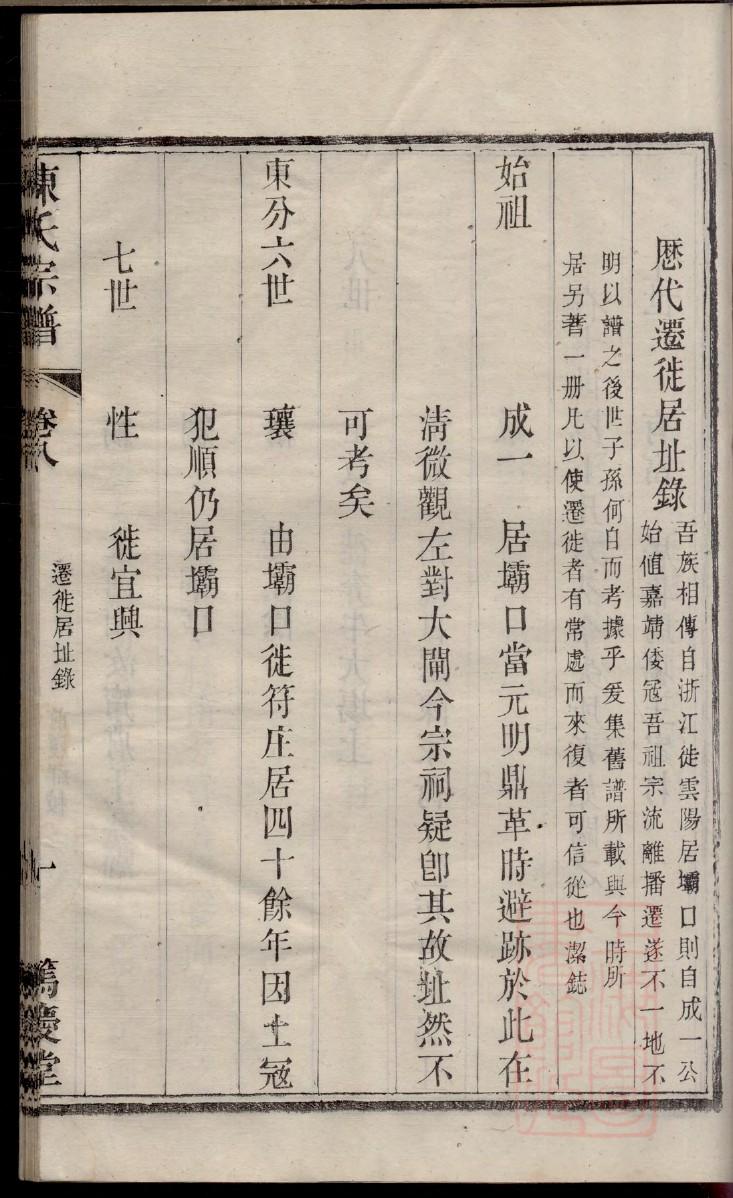 歷代遷徙居址錄
吾族相傳自浙江徙雲陽居壩口則自成一公
始值嘉靖倭冦吾祖宗流離播遷遂不一地不
明以譜之後世子孫何自而考據乎爰集舊譜所載與今時所
居另著一册凡以使遷徙者有常處而來復者可信從也潔誌
始祖　成一　居壩口當元明鼎革時避跡於此在
清微觀左對大閘今宗祠疑卽其故址然不
可考矣
東分六世　瓖　由壩口徙符庄居四十餘年因土冦
犯順仍居壩口
七世　性　徙宜興
陳氏宗譜　卷八　遷徙居址錄　一　篤慶堂